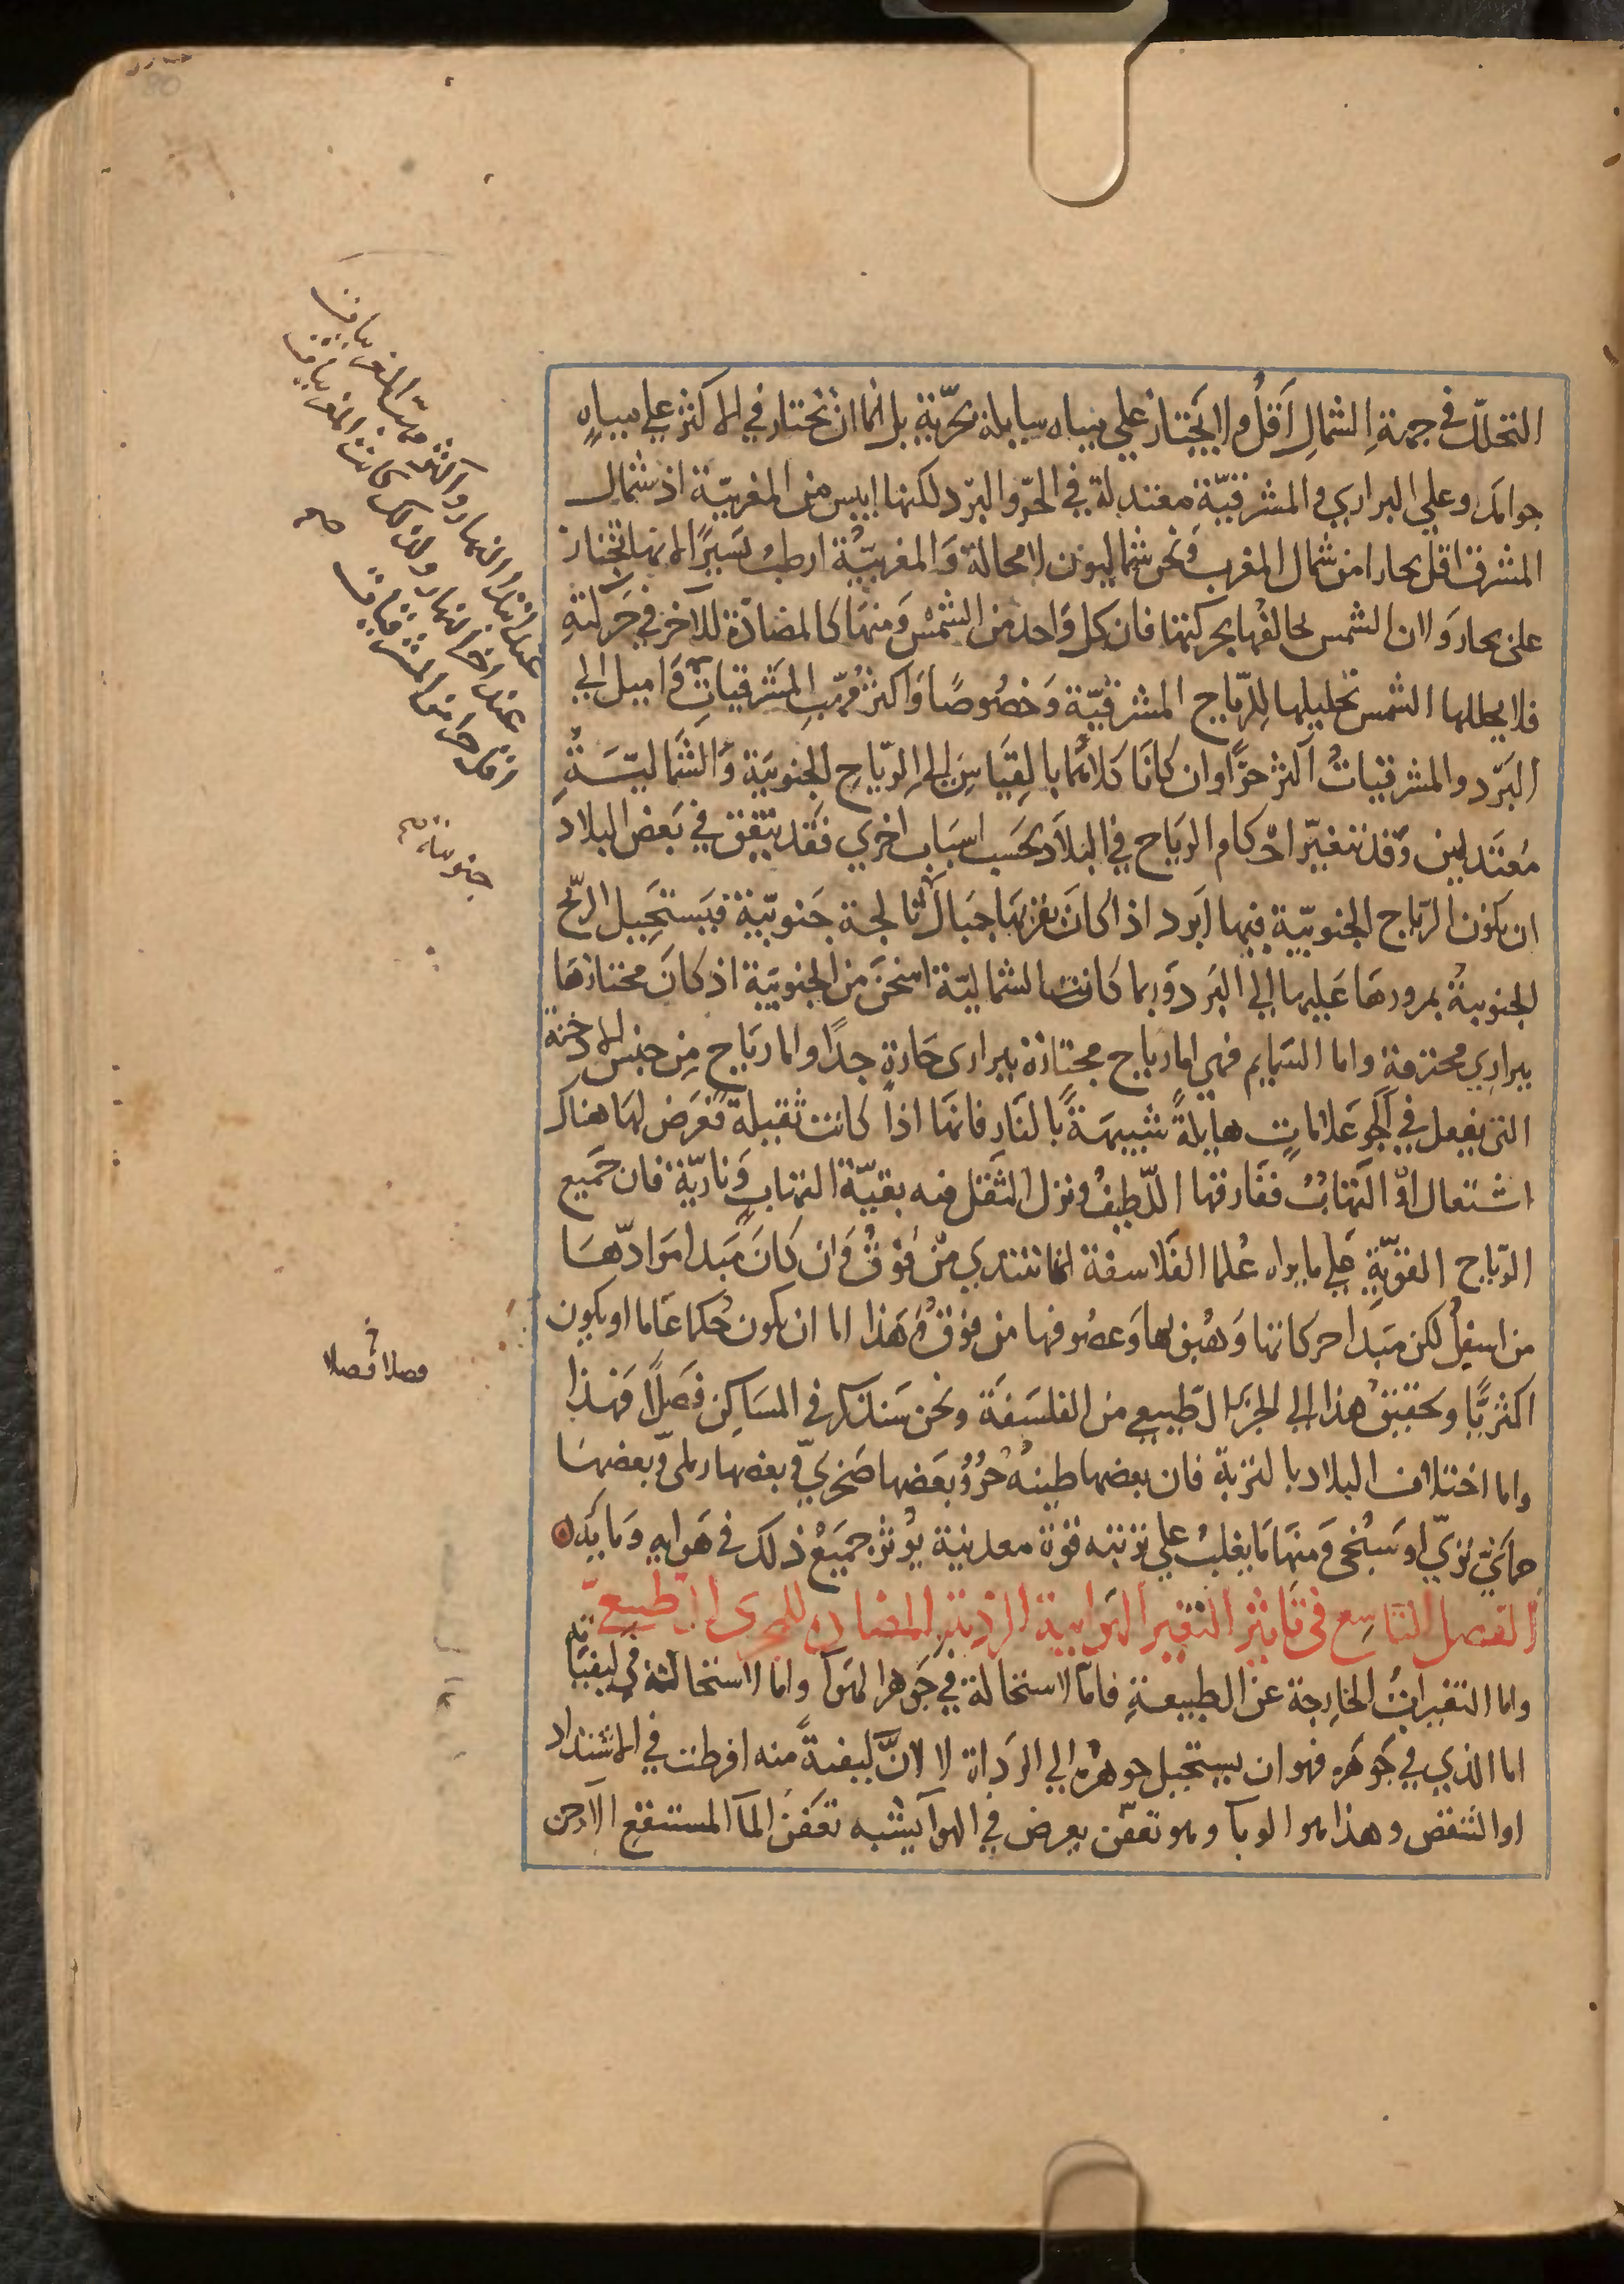 التحلل في جهة الشمال اقل ولا يجتاز علي مياه سايلة بحرية بل انما ان تجتاز في الاكثر علي مياه
جوامد وعلي البراري والمشرقية معتدلة في الحر والبرد لكنها ايبس من المغربية اذ شمال
المشرق اقل بحارا من شمال المغرب ونحن شماليون لا محالة والمغربية ارطب يسيرا لانها تجتاز
على بحار ولان الشمس تخالفها بحركتها فان كل واحد من الشمس ومنها كالمضادة للآخر في حركته
فلا يحللها الشمس تحليلها للرياح المشرقية وخصوصا واكثر مهب المشرقيات
واميل الي
البرد والمشرقيات اكثر حرا وان كانا كلاهما بالقياس الى الرياح الجنوبية والشمالية
معتدلين وقد تتغير احكام الرياح في البلاد بحسب اسباب اخري فقد يتفق في بعض البلاد
ان يكون الرياح الجنوبية فيها ابرد اذا كان بقربها جبال ثالجة جنوبية فيستحيل الريح
الجنوبية بمرورها عليها الي البرد وربما كانت الشمالية اسخن من الجنوبية اذ كان مجتازها
ببراري محترقة واما السمايم فهي اما رياح مجتازة ببراري حارة جدا واما رياح من جنس الادخنة
التي يفعل في الجو علامات هايلة شبيهة بالنار فانها اذا كانت ثقيلة فعرض لها هناك
اشتعال او التهاب ففارقها اللطيف ونزل الثقل فيه بقية التهاب ونارية فان جميع
الرياح القوية علي ما يراه علما الفلاسفة انما تبتدي من فوق وان كان مبدا موادها
من اسفل لكن مبدا حركاتها وهبوبها وعصوفها من فوق وهذا اما ان يكون حكما عاما او يكون
اكثريا وتحقيق هذا الي الجزء الطبيعي من الفلسفة ونحن سنذكر في المساكن فصلا فهذا
واما اختلاف البلاد بالتربة فان بعضها طينه حر وبعضها صخري وبعضها رملي وبعضها
حمائي نزي او سبخي ومنها ما يغلب علي تربته قوة معدنية يؤثر جميع ذلك في هوايه ومايه
الفصل التاسع في تاثير التغير الهوايية الرديئة المضادة للمجرى الطبيعي
واما التغيرات الخارجة عن الطبيعة فاما لاستحالة في جوهر الهوآ واما لاستحالة في كيفياته
اما الذي في جوهره فهو ان يستحيل جوهره الي الرداة لا لان كيفية منه افرطت في الاشتداد
او التنقص وهذا هو الوبآ وهو تعفن يعرض في الهوآ يشبه تعفن المآ المستنقع الآجن
عند ابتدا النهار واكثر مهب المغربيات
عند اخر النهار ولذلك كانت المغربيات
اقل حرا من المشرقيات
صح
جنوبية
فصلا فصلا